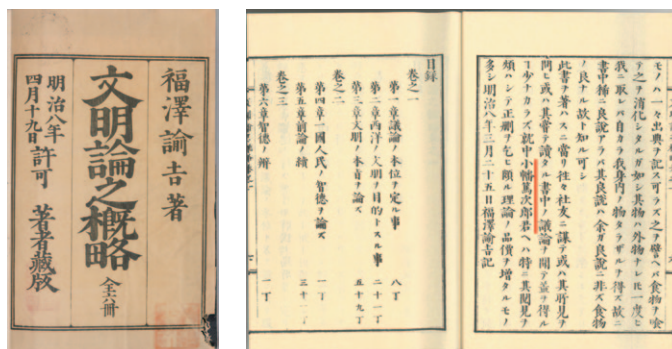 福澤諭吉著
文明論之概略 全六冊
明治八年
四月十九日許可
著者藏版
モノハ一々出典ヲ記ス可ラズ之ヲ譬ヘバ食物ヲ喰
テ之ヲ消化シタルガ如シ其物ハ外物ナレ𪜈一度ビ
我ニ取レバ自カラ我身内ノ物タラザルヲ得ズ故ニ
書中稀ニ良說アラバ其良說ハ余ガ良說ニ非ズ食物
ノ良ナル故ト知ル可シ
此書ヲ著ハスニ當リ往々社友ニ謀テ或ハ其所見ヲ
問ヒ或ハ其嘗テ讀タル書中ノ議論ヲ聞テ益ヲ得ル
ヿ少ナカラズ就中小幡篤次郎君ヘハ特ニ其閲見ヲ
煩ハシテ正刪ヲ乞ヒ頗ル理論ノ品價ヲ增タルモノ
多シ明治八年三月二十五日福澤諭吉記
目録
卷之一
第一章議論ノ本位ヲ定ル事 八丁
第二章西洋ノ文明ヲ目的トスル事 二十一丁
卷之二
第三章文明ノ本旨ヲ論ズ 五十九丁
第四章一國人民ノ智德ヲ論ズ 一丁
第五章前論ノ續 三十一丁
卷之三
第六章智德ノ辨 一丁